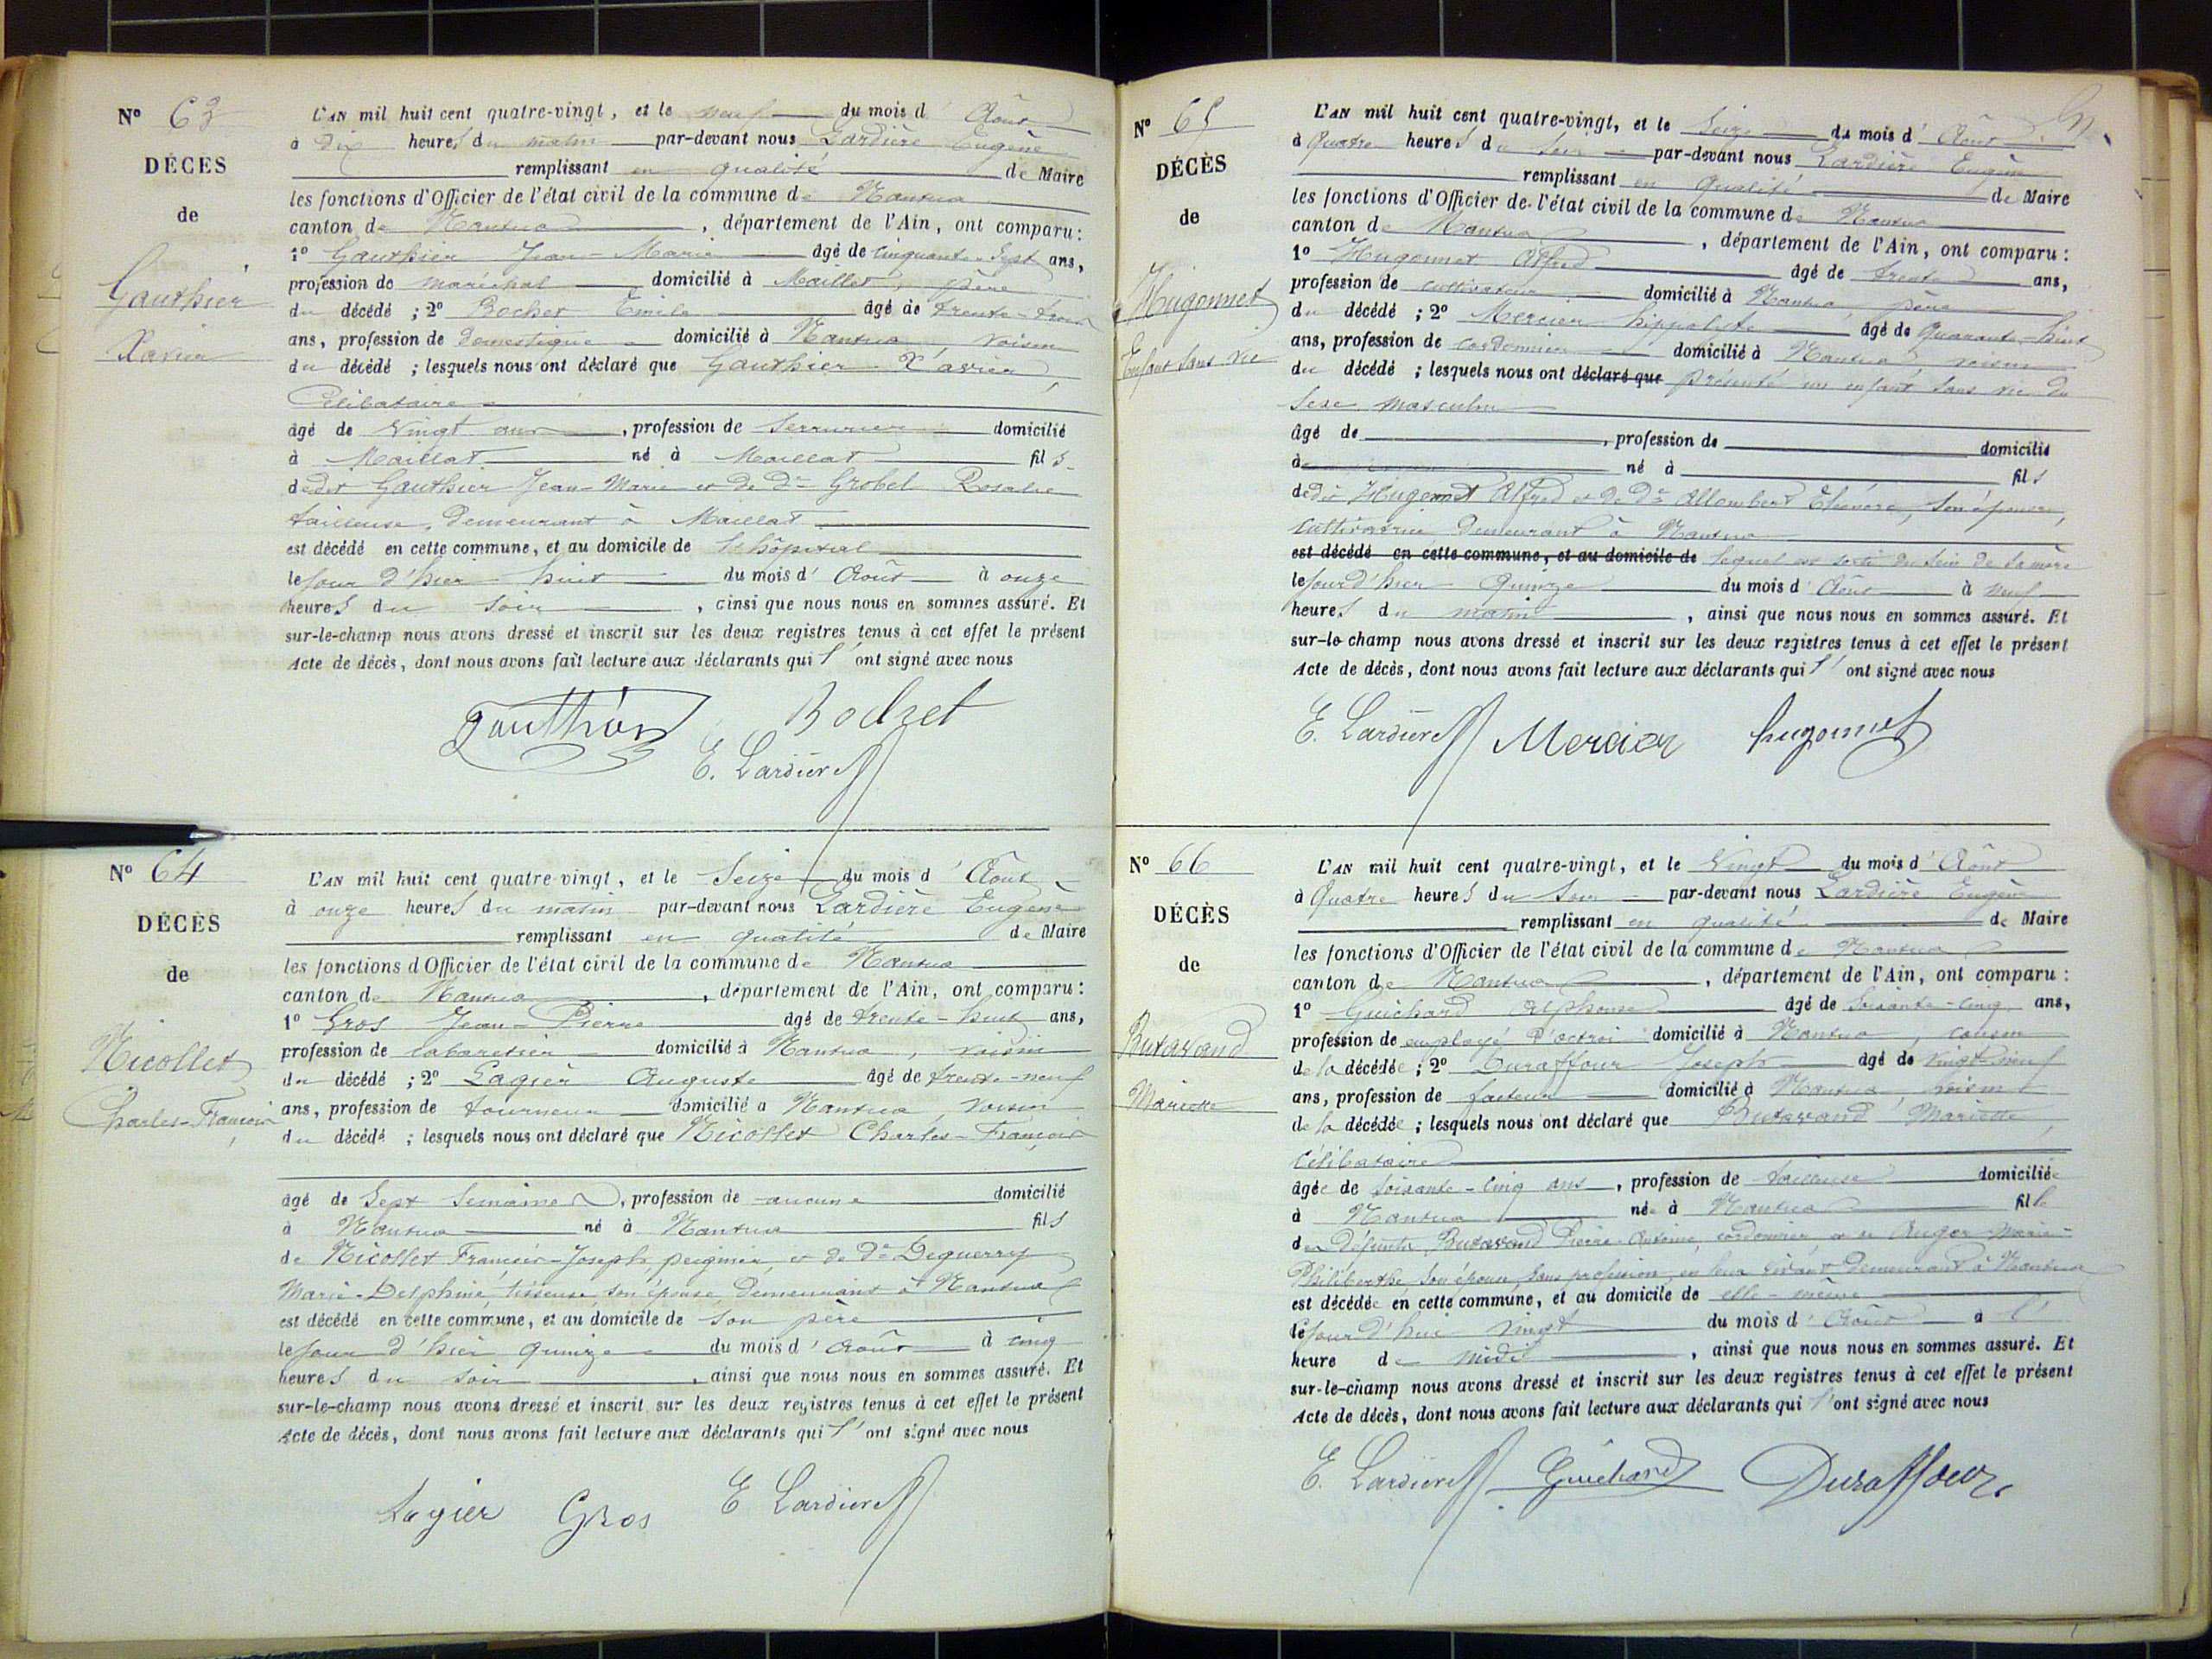 Nº 63
DÉCÈS
de
Gauthier
Xavier
L'AN mil huit cent quatre-vingt, et le neuf du mois d'Août
à dix heures du matin par-devant nous Lardière Eugène
remplissant en qualité de Maire
les fonctions d'Officier de l'état civil de la commune de Nantua
canton de Nantua, département de l'Ain, ont comparu:
1º Gauthier Jean-Marie âgé de cinquante-sept ans,
profession de maréchal domicilié à Maillat, père
du décédé ; 2º Rochet Emile âgé de trente-trois
ans, profession de domestique domicilié à Nantua, voisin
du décédé ; lesquels nous ont déclaré que Gauthier Xavier,
Célibataire
âgé de Vingt ans, profession de Serrurier domicilié
à Maillat né à Maillat fils
de dit Gauthier Jean-Marie et de De Grobel Rosalie
tailleuse, demeurant à Maillat
est décédé en cette commune, et au domicile de l'hôpital
le jour d'hier huit du mois d'Août à onze
heures du soir, ainsi que nous nous en sommes assuré. Et
sur-le-champ nous avons dressé et inscrit sur les deux registres tenus à cet effet le présent
Acte de décès, dont nous avons fait lecture aux déclarants qui l'ont signé avec nous
Gauthier Rochet
E. Lardière
Nº 64
DÉCÈS
de
Nicollet
Charles-François
L'AN mil huit cent quatre-vingt, et le Seize du mois d'Août
à onze heures du matin par-devant nous Lardière Eugène
remplissant en qualité de Maire
les fonctions d'Officier de l'état civil de la commune de Nantua
canton de Nantua, département de l'Ain, ont comparu:
1º Gros Jean-Pierre âgé de trente-huit ans,
profession de cabaretier domicilié à Nantua, voisin
du décédé ; 2º Lagier Auguste âgé de trente-neuf
ans, profession de tourneur domicilié à Nantua, voisin
du décédé ; lesquels nous ont déclaré que Nicollet Charles-François,
âgé de Sept Semaines, profession de aucune domicilié
à Nantua né à Nantua fils
de Nicollet François-Joseph, peignier, et de De Deguerry
Marie-Delphine, tisseuse son épouse, demeurant à Nantua
est décédé en cette commune, et au domicile de son père
le jour d'hier quinze du mois d'Août à cinq
heures du soir, ainsi que nous nous en sommes assuré. Et
sur-le-champ nous avons dressé et inscrit sur les deux registres tenus à cet effet le présent
Acte de décès, dont nous avons fait lecture aux déclarants qui l'ont signé avec nous
Lagier Gros E Lardière
Nº 65
DÉCÈS
de
Hugonnet
Enfant sans vie
L'AN mil huit cent quatre-vingt, et le Seize du mois d'Août
à Quatre heures du Soir par-devant nous Lardière Eugène
remplissant en qualité de Maire
les fonctions d'Officier de l'état civil de la commune de Nantua
canton de Nantua, département de l'Ain, ont comparu :
1º Hugonnet Alfred âgé de trente ans,
profession de cultivateur domicilié à Nantua, père
du décédé ; 2º Mercier hippolyte âgé de Quarante-huit
ans, profession de cordonnier domicilié à Nantua, voisin
du décédé ; lesquels nous ont déclaré que présenté un enfant sans vie du
sexe masculin
âgé de , profession de domicilié
à né à fils
de dit Hugonnet Alfred et de De Allombert Eléonore, son épouse,
cultivatrice, demeurant à Nantua
est décédé en cette commune, et au domicile de lequel est sorti du sein de sa mère
le jour d'hier Quinze du mois d'Août à neuf
heures du matin, ainsi que nous nous en sommes assuré. Et
sur-le champ nous avons dressé et inscrit sur les deux registres tenus à cet effet le présent
Acte de décès, dont nous avons fait lecture aux déclarants qui l'ont signé avec nous
E. Lardière Mercier hugonnet
Nº 66
DÉCÈS
de
Butavand
Mariette
L'AN mil huit cent quatre-vingt, et le Vingt du mois d'Août
à Quatre heures du Soir par-devant nous Lardière Eugène
remplissant en qualité de Maire
les fonctions d'Officier de l'état civil de la commune de Nantua
canton de Nantua, département de l'Ain, ont comparu :
1º Guichard Alphonse âgé de Soixante-cinq ans,
profession de employé d'octroi domicilié à Nantua, cousin
de la décédée ; 2º Duraffour Joseph âgé de vingt-neuf
ans, profession de facteur domicilié à Nantua, voisin
de la décédée ; lesquels nous ont déclaré que Butavand Mariette,
Célibataire
âgée de soixante-cinq ans, profession de tailleuse domiciliée
à Nantua née à Nantua fille
des Défunts Butavand Pierre-Antoine, cordonnier et de Auger Marie-
Philiberthe, son épouse, sans profession, en leur vivant demeurant à Nantua
est décédée en cette commune, et au domicile de elle-même
le jour d'hui vingt du mois d'Août à l'
heure de midi, ainsi que nous nous en sommes assuré. Et
sur-le-champ nous avons dressé et inscrit sur les deux registres tenus à cet effet le présent
Acte de décès, dont nous avons fait lecture aux déclarants qui l'ont signé avec nous
E. Lardière Guichard Duraffour